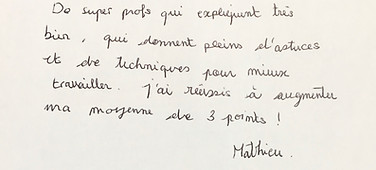 De super profs qui expliquent très
bien, qui donnent pleins d'astuces
et de techniques pour mieux
travailler. J'ai réussis à augmenter
ma moyenne de 3 points !
Matthieu.